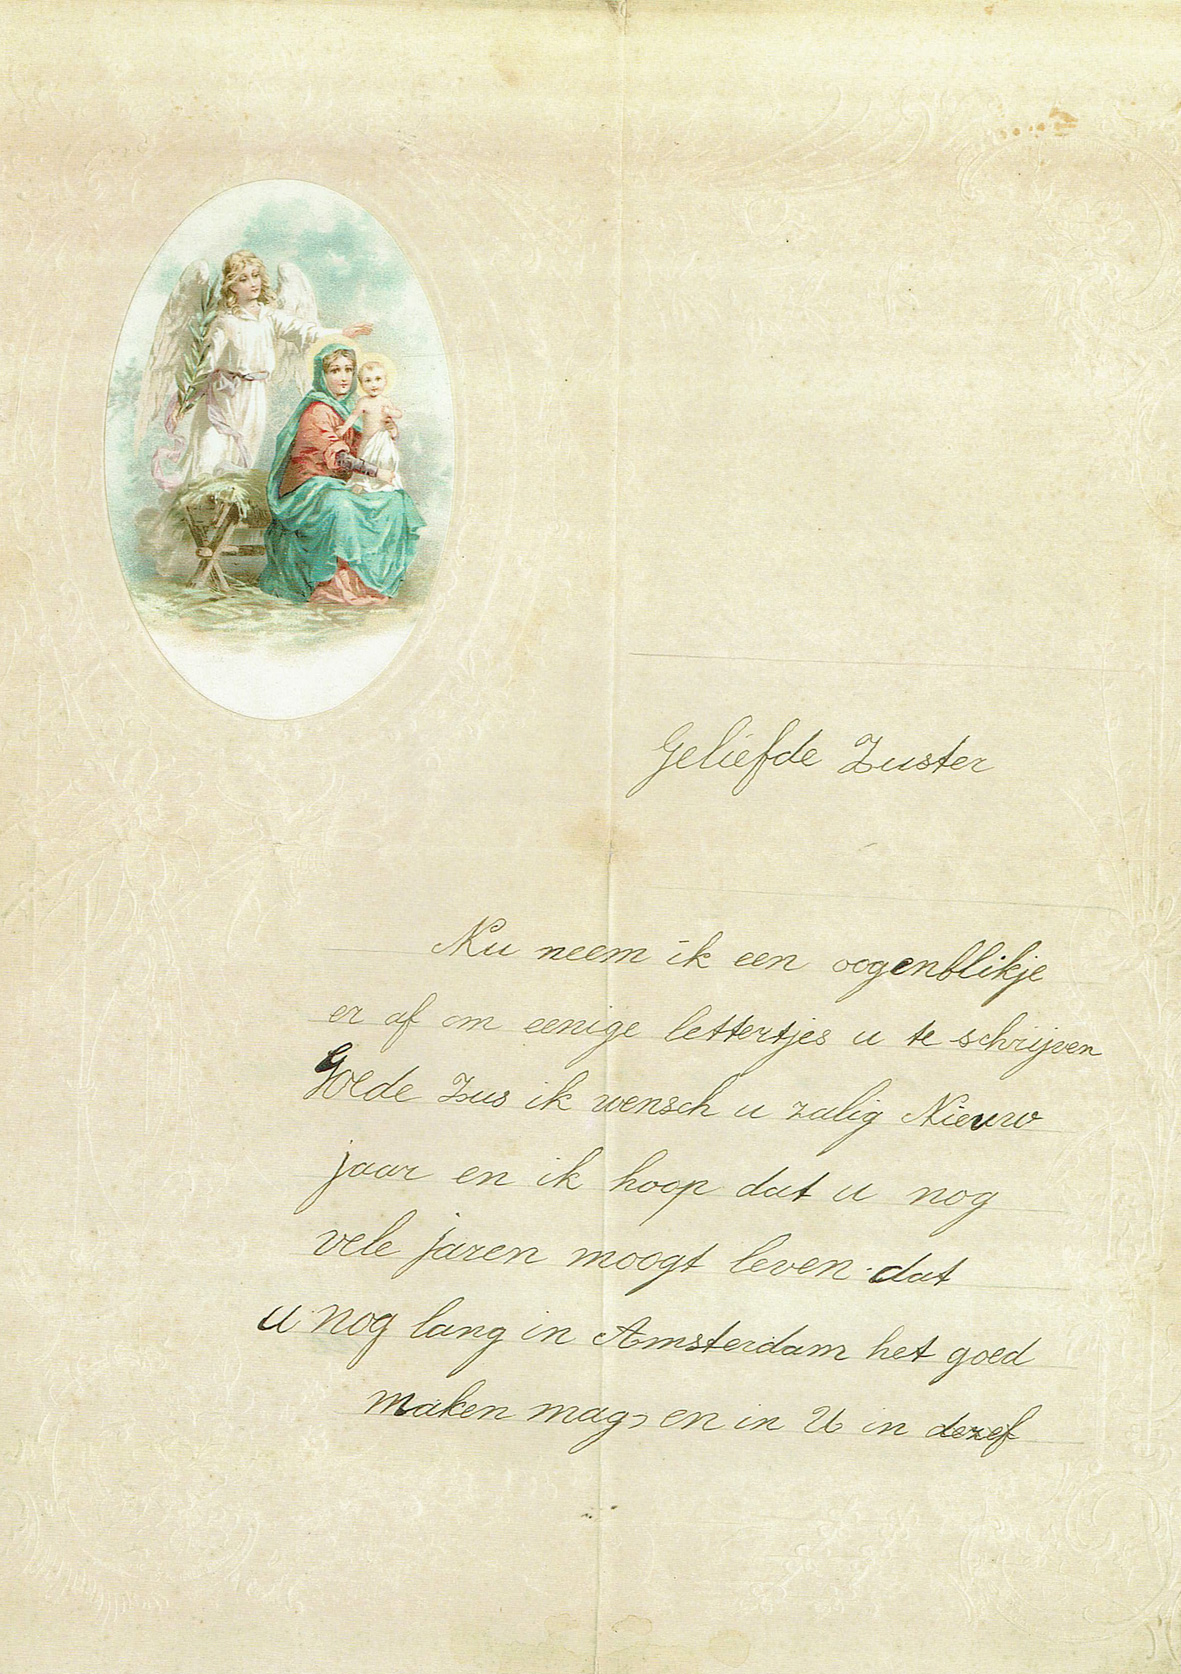 Geliefde Zuster
Nu neem ik een oogenblikje
er af om eenige lettertjes u te schrijven
Goede Zus ik wensch u zalig Nieuw
jaar en ik hoop dat u nog
vele jaren moogt leven dat
u nog lang in Amsterdam het goed
maken mag, en in U in dezef